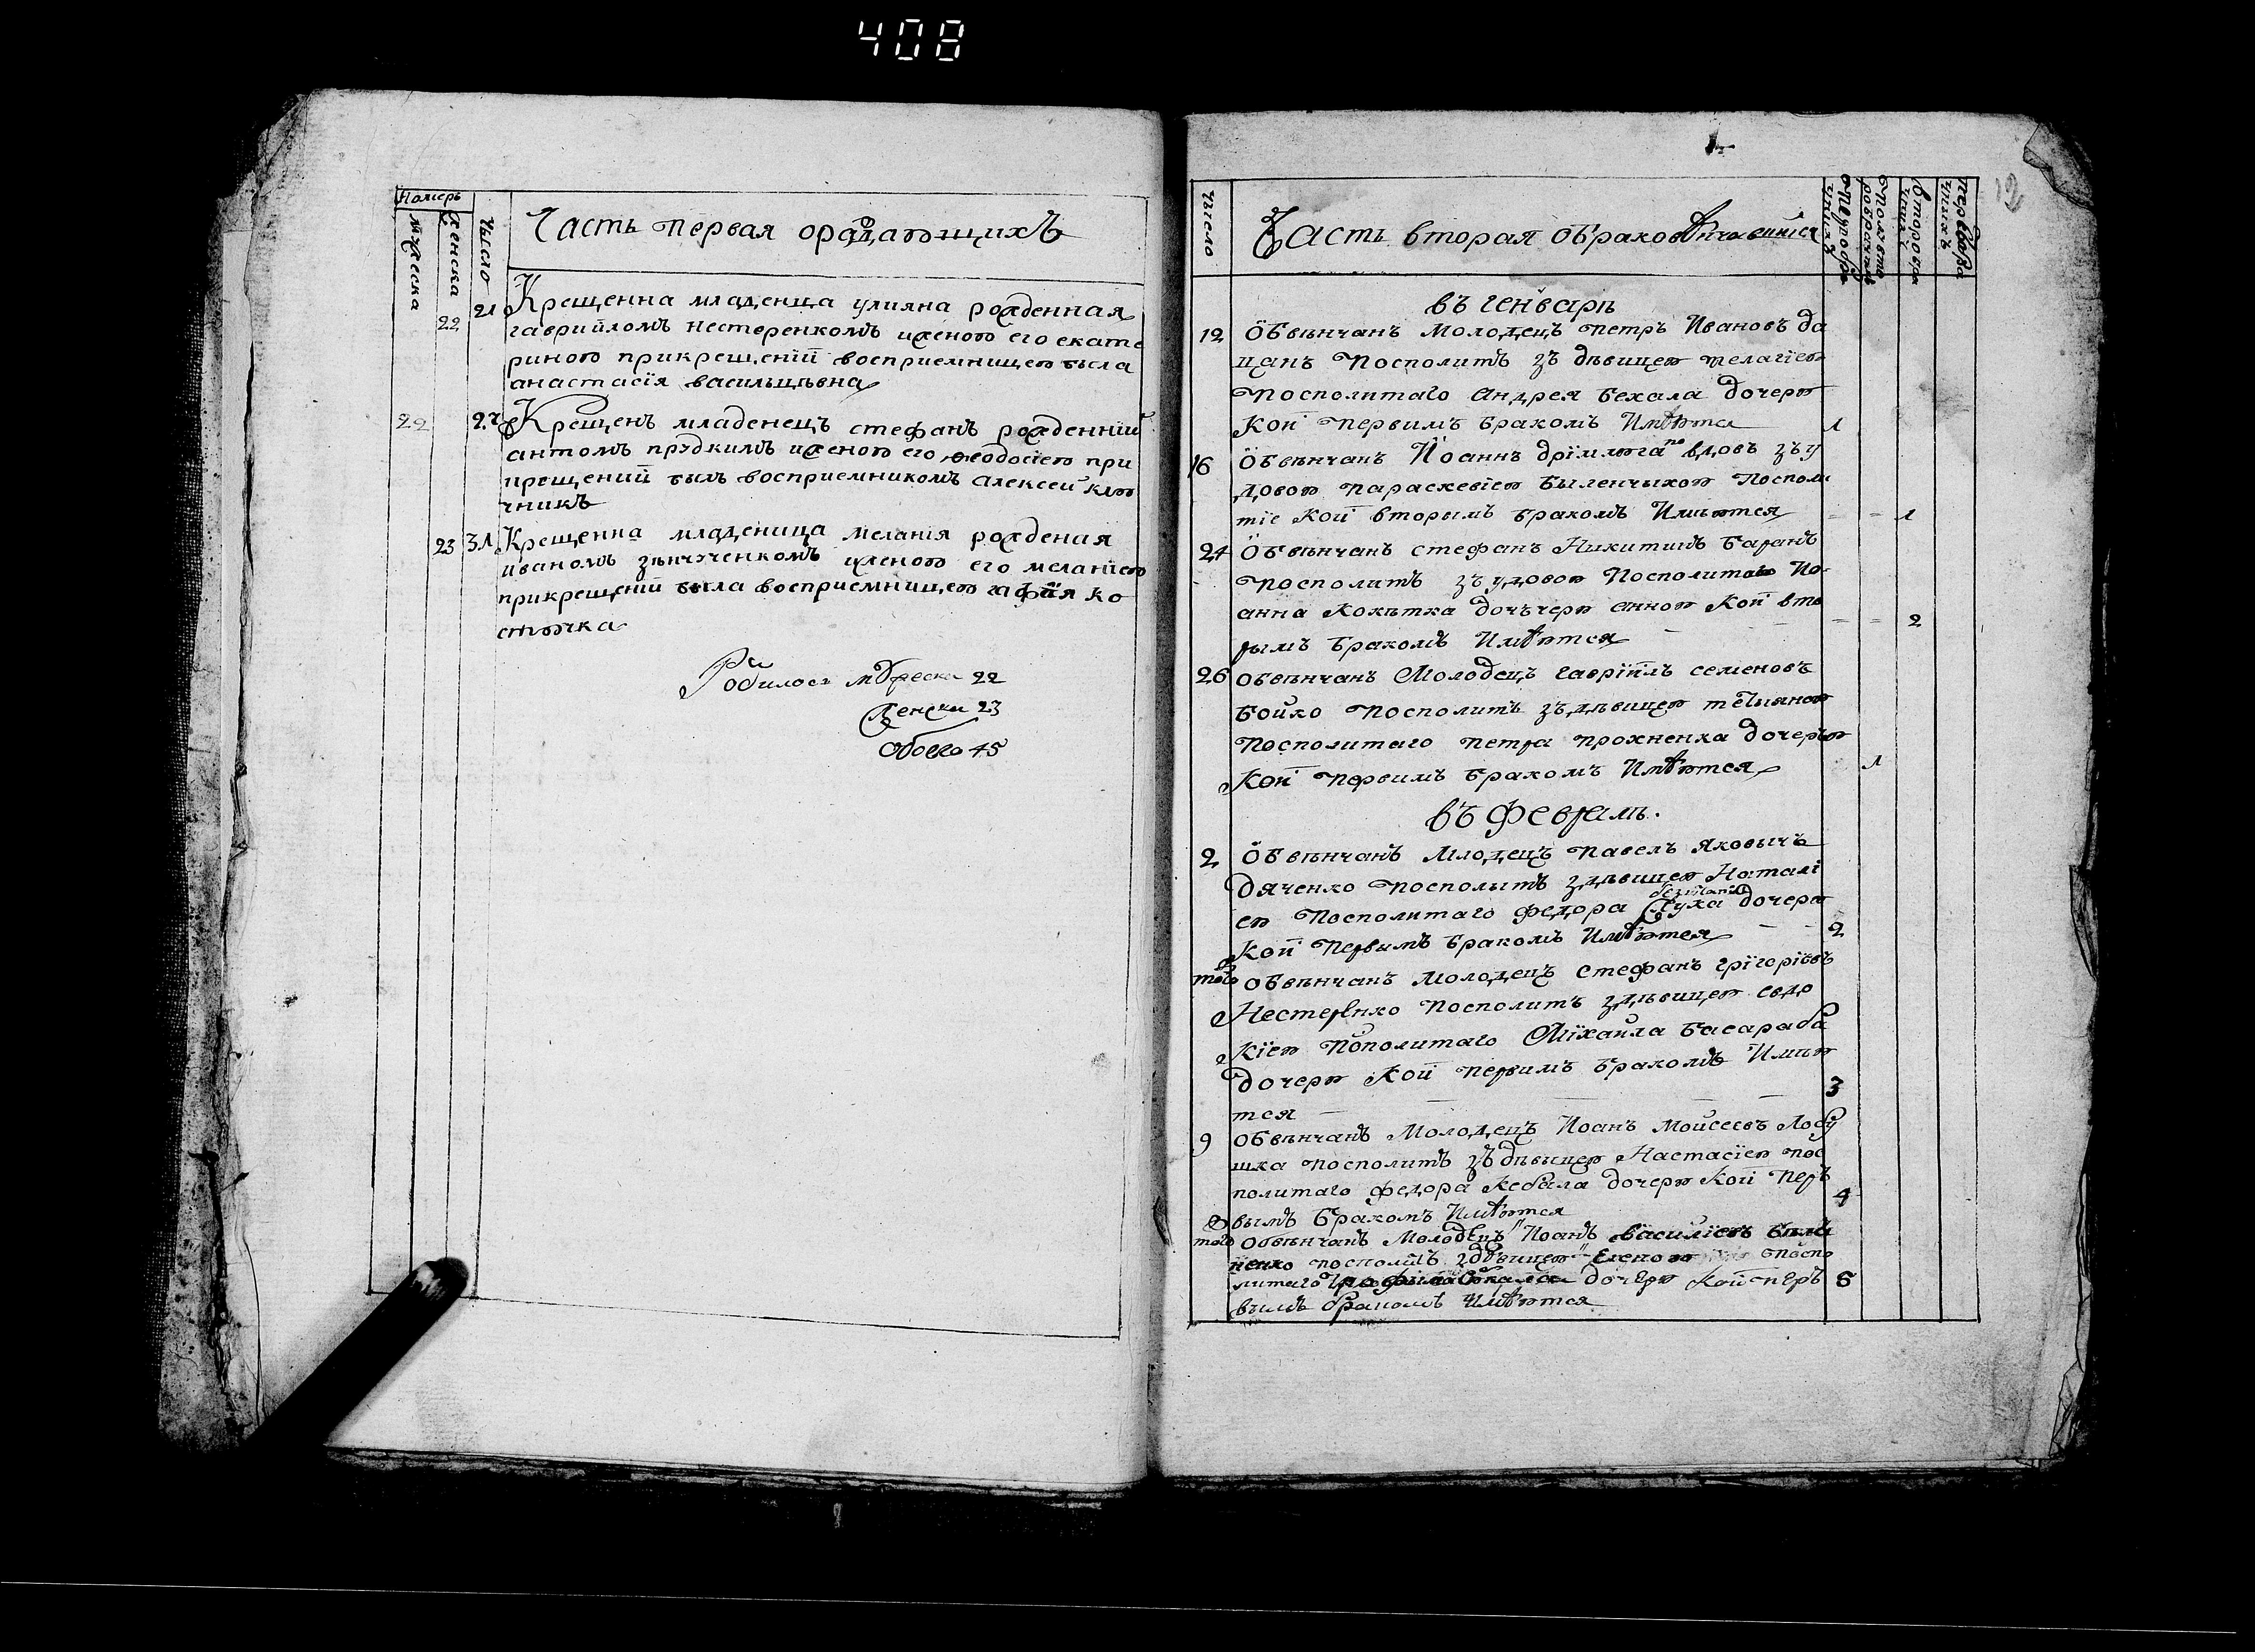 408
Номеръ
мужеска
женска
Число
Часть первая ораждающихъ
22 21 Крещенна младенца улияна рожденная
гаврийломъ нестеренкомъ иженою его екате
риною прикрещенїй восприемницею была
анастасїя васильцѣвна
22 27 Крещенъ младенецъ стефанъ рожденнїй
антомъ прудкимъ иженою его феодосїею при
крещений былъ восприемникомъ алексей клю
чникъ
23 31 Крещенна младеница меланїя рожденая
иваномъ зѣнченкомъ иженою его меланїею
прикрещенїй была восприемницею гафїя ко
стючка
Родилось мужеска 22
Женска 23
Обоего 45
12
число
Часть вторая обракосочетавшихся
въ генварѣ
12 Обвѣнчанъ Молодецъ Петръ Ивановъ да
цанъ Посполитъ зъ дѣвицею пелагїею
Посполитаго Андрея Бехала дочерю
Кої первимъ бракомъ Имѣются 1
16 Обвѣнчанъ Иоаннъ дрїмлюга по вдовъ зъ у
довою Параскевїею Быленчыкою Посполи
тїе Кої вторымъ бракомъ Имѣются 1
24 Обвѣнчанъ стефанъ Никитинъ Баранъ
Посполитъ зъ удовою Посполитаго Ио
анна Кокѣтка дочъчерю анною Кої вто
рымъ бракомъ Имѣются 2
26 Обвѣнчанъ Молодецъ гаврїилъ семеновъ
Бойко Посполитъ зъ дѣвицею тетияною
Посполитаго Петра прохненка дочерью
Кої первимъ бракомъ Имѣются 1
въ Февралѣ.
2 Обвѣнчанъ Млодецъ Павелъ Яковычъ
Дяченко Посполытъ здѣвицею Наталї
ею Посполитаго федора Жука дочерю
Кої Первымъ бракомъ Имѣются 2
того Обвѣнчанъ Молодецъ Стефанъ грїгорїевъ
Нестеренко Посполитъ здѣвицею евдо
кїею Пополитаго Мїхаила Басараба
дочерю Кої первимъ бракомъ Имѣю
тся 3
9 Обвѣнчанъ Молодецъ Иоанъ Мойсеевъ Лобу
шка посполитъ зъ дѣвыцею Настасїею пос
политаго федора Кебала дочерю Кої Пер
вымъ бракомъ Имѣются 4
того Обвѣнчанъ Молодецъ Иоанъ василїевъ Били
ченко посполитъ здѣвицею Еленою Поспо
литаго дочерю Кої спер 5
вымъ бракомъ Имѣются